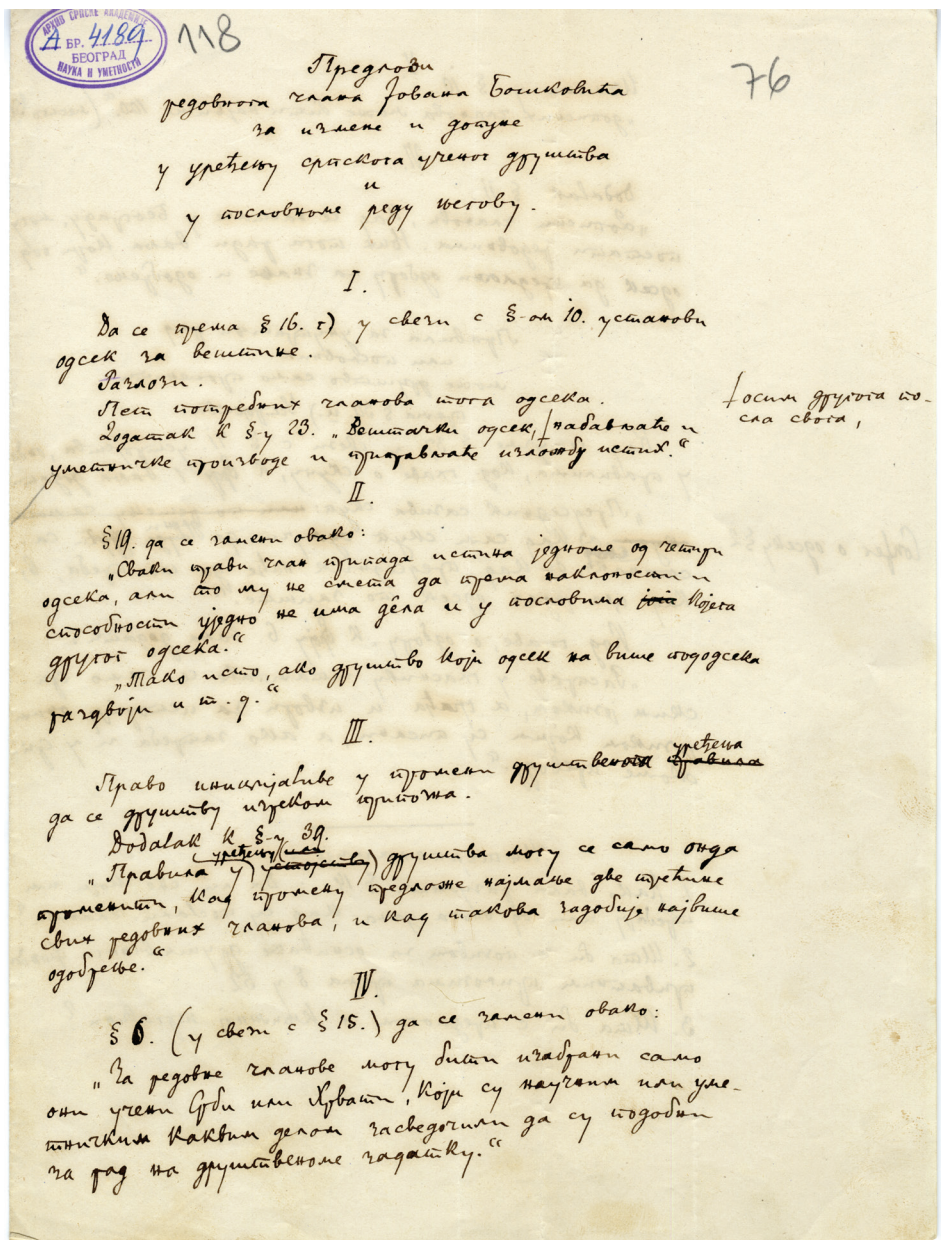 АРХИВ СРПСКЕ АКАДЕМИЈЕ
А БР. 4189
БЕОГРАД
НАУКА И УМЕТНОСТИ
118
76
Предлози
редовнога члана Јована Бошковића
за измене и допуне
у уређењу српскога ученог друштва
и
у пословноме реду његову.
I.
Да се према § 16. г) у свези с §-ом 10. установи
одсек за вештине.
Разлози.
Пет потребних чланова тога одсека.
Додатак к §-у 23. „Вештачки одсек, ⌈набављаће и
⌈осим другога по-
сла свога,
уметничке производе и приправљаће изложбу истих.“
II.
§ 19. да се замени овако:
„Сваки прави члан припада истина једноме од четири
одсека, али то му не смета да према наклоности и
способности уједно не има дела и у пословима којега
другог одсека.“
„Тако исто, ако друштво који одсек на више пододсека
раздвоји и т. д.“
III.
Право иницијативе у промени друштвенога уређења правила
да се друштву изреком припозна.
Dodatak к §-у 39.
„Правила у уређењу (или устојству) друштва могу се само онда
променити, кад промену предложе најмање две трећине
свих редовних чланова, и кад такова задобије највише
одобрење.“
IV.
§ 6. (у свези с § 15.) да се замени овако:
„За редовне чланове могу бити изабрани само
они учени Срби или Хрвати, који су научним или уме-
тничким каквим делом засведочили да су подобни
за рад на друштвеноме задатку.“